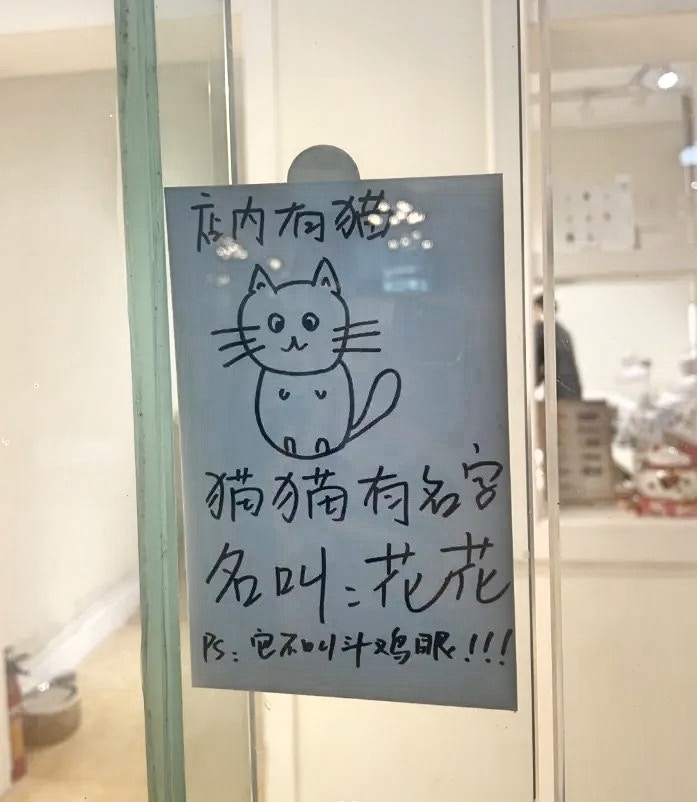 店内有猫
猫猫有名字
名叫:花花
PS:它不叫斗鸡眼!!!